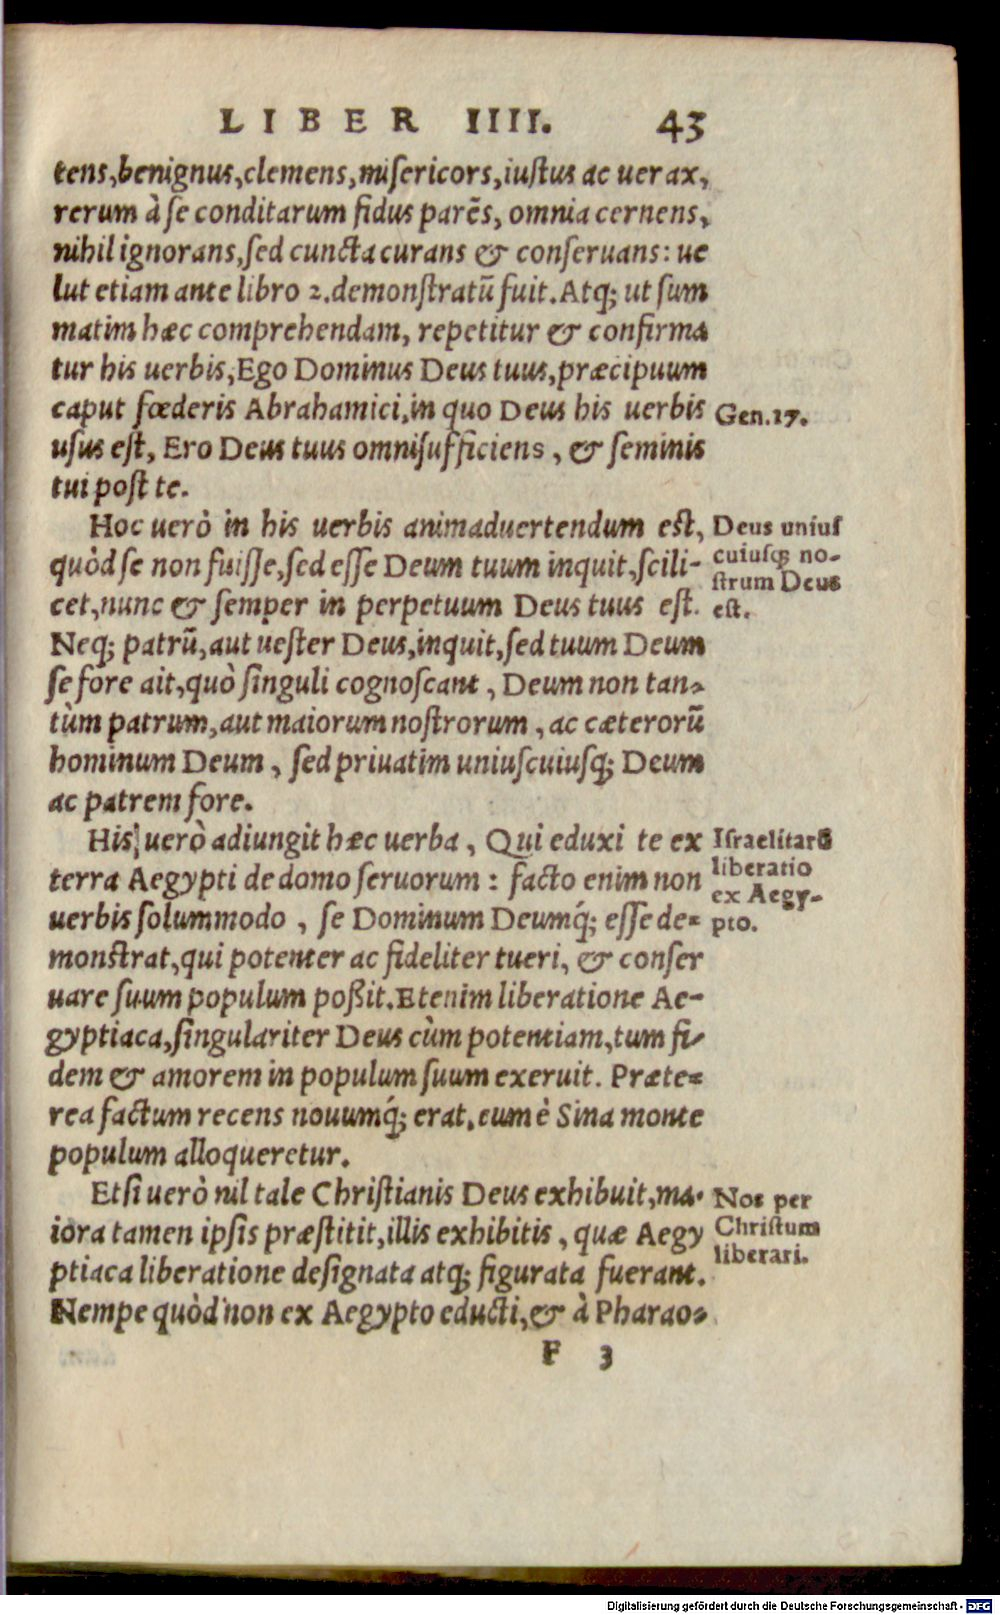 LIBER IIII. 43
tens, benignus, clemens, misericors, iustus ac uerax,
rerum à se conditarum fidus parẽs, omnia cernens,
nihil ignorans, sed cuncta curans & conseruans: ue
lut etiam ante libro 2. demonstratũ fuit. Atq; ut sum
matim hæc comprehendam, repetitur & confirma
tur his uerbis, Ego Dominus Deus tuus, præcipuum
caput fœderis Abrahamici, in quo Deus his uerbis
Gen.17.
usus est, Ero Deus tuus omnisufficiens, & seminis
tui post te.
Hoc uerò in his uerbis animaduertendum est,
Deus unius
quòd se non fuisse, sed esse Deum tuum inquit, scili-
cuiusq; no-
strum Deus
cet, nunc & semper in perpetuum Deus tuus est.
est.
Neq; patrũ, aut uester Deus, inquit, sed tuum Deum
se fore ait, quò singuli cognoscant, Deum non tan-
tùm patrum, aut maiorum nostrorum, ac cæterorũ
hominum Deum, sed priuatim uniuscuiusq; Deum
ac patrem fore.
His uerò adiungit hæc uerba, Qui eduxi te ex
Israelitarũ
terra Aegypti de domo seruorum: facto enim non
liberatio
ex Aegy-
uerbis solummodo, se Dominum Deumq́; esse de-
pto.
monstrat, qui potenter ac fideliter tueri, & conser
uare suum populum poßit. Etenim liberatione Ae-
gyptiaca, singulariter Deus cùm potentiam, tum fi-
dem & amorem in populum suum exeruit. Præte-
rea factum recens nouumq́; erat, cum è Sina monte
populum alloqueretur.
Etsi uerò nil tale Christianis Deus exhibuit, ma-
Nos per
iora tamen ipsis præstitit, illis exhibitis, quæ Aegy
Christum
liberari.
ptiaca liberatione designata atq; figurata fuerant.
Nempe quòd non ex Aegypto educti, & à Pharao-
F 3
Digitalisierung gefördert durch die Deutsche Forschungsgemeinschaft - DFG